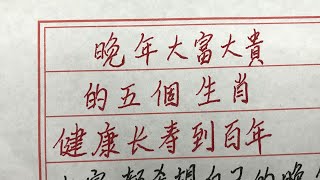 晚年大富大貴
的五個生肖
健康长寿到百年